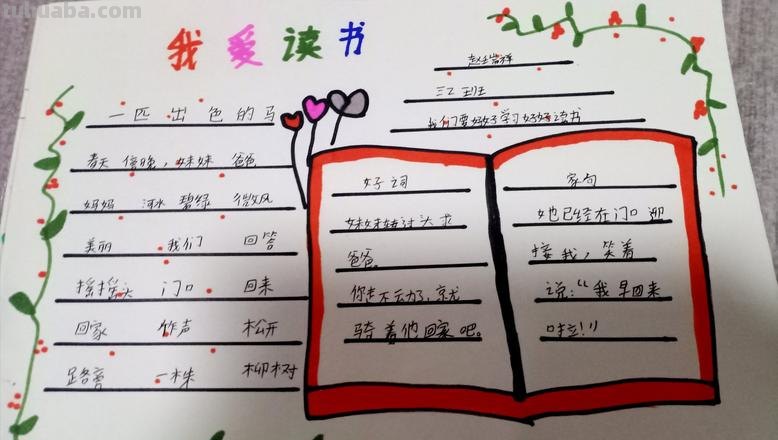 tuhuaba.com
我爱读书
一匹出色的马
春天 傍晚，妹妹 爸爸
妈妈 河水 碧绿 微风
美丽 我们 回答
摇摇头 门口 回来
回家 作声 松开
路旁 一株 柳树
三 班
我们要好好学习好好读书
好词
妹妹转过头 求
爸爸
你走不动了，就
骑着他回家吧。
家句
她已经在门口迎
接我，笑着
说：“我早回来
啦！”